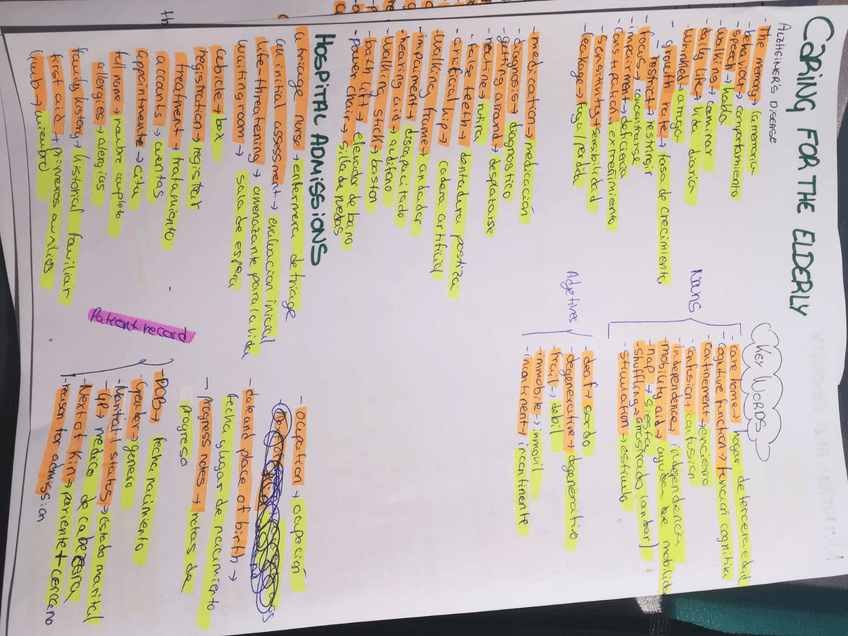 CARING FOR THE ELDERLY
ALZHEIMER'S DISEASE
- The memory → la memoria
- behaviour → comportamiento
- speech → habla
- walking → caminar
- daily life → vida diaria
- wrinkle → arruga
- growth rate → tasa de crecimiento
- restrict → restringir
- focus → concentrarse
- impairment → deficiencia
- constipation → extreñimiento
- sensitivity → sensibilidad
- leakage → fuga/perdida
- medication → medicación
- diagnosis → diagnostico
- getting around → desplazarse
- routine → rutina
- false teeth → dentadura postiza
- artificial hip → cadera artificial
- walking frame → andador
- impairment → discapacitado
- hearing aid → audifono
- walking stick → baston
- bath lift → elevador de baño
- power chair → silla de ruedas
KEY WORDS
Nouns
- care home → hogar de tercera edad
- cognitive function → función cognitiva
- confinement → encierro
- confusion → confusion
- independence → independencia
- mobility aid → ayuda de movilidad
- nap → siesta
- shuffling → arrastrado (andar)
- stimulation → estimulo
Adjetives
- deaf → sordo
- degenerative → degenerativo
- frail → debil
- immobile → inmovil
- incontinent → incontinente
HOSPITAL ADMISSIONS
a triage nurse → enfermera de triage
an initial assessment → evaluacion inicial
life-threatening → amenazante para la vida
waiting room → sala de espera
cubicle → box
registration → registrar
treatment → tratamiento
accounts → cuentas
appointment → cita
full name → nombre completo
allergies → alergias
family history → historial familiar
first aid → primeros auxilios
limb → miembro
- ocupation → ocupación
- date and place of birth →
fecha y lugar de nacimiento
- progress notes → notas de
progreso
Patient record
- DOB → fecha nacimiento
- Gender → genero
- Marital status → Estado marital
- GP → medico de cabecera
- Next of Kin → pariente + cercano
- reason for admission